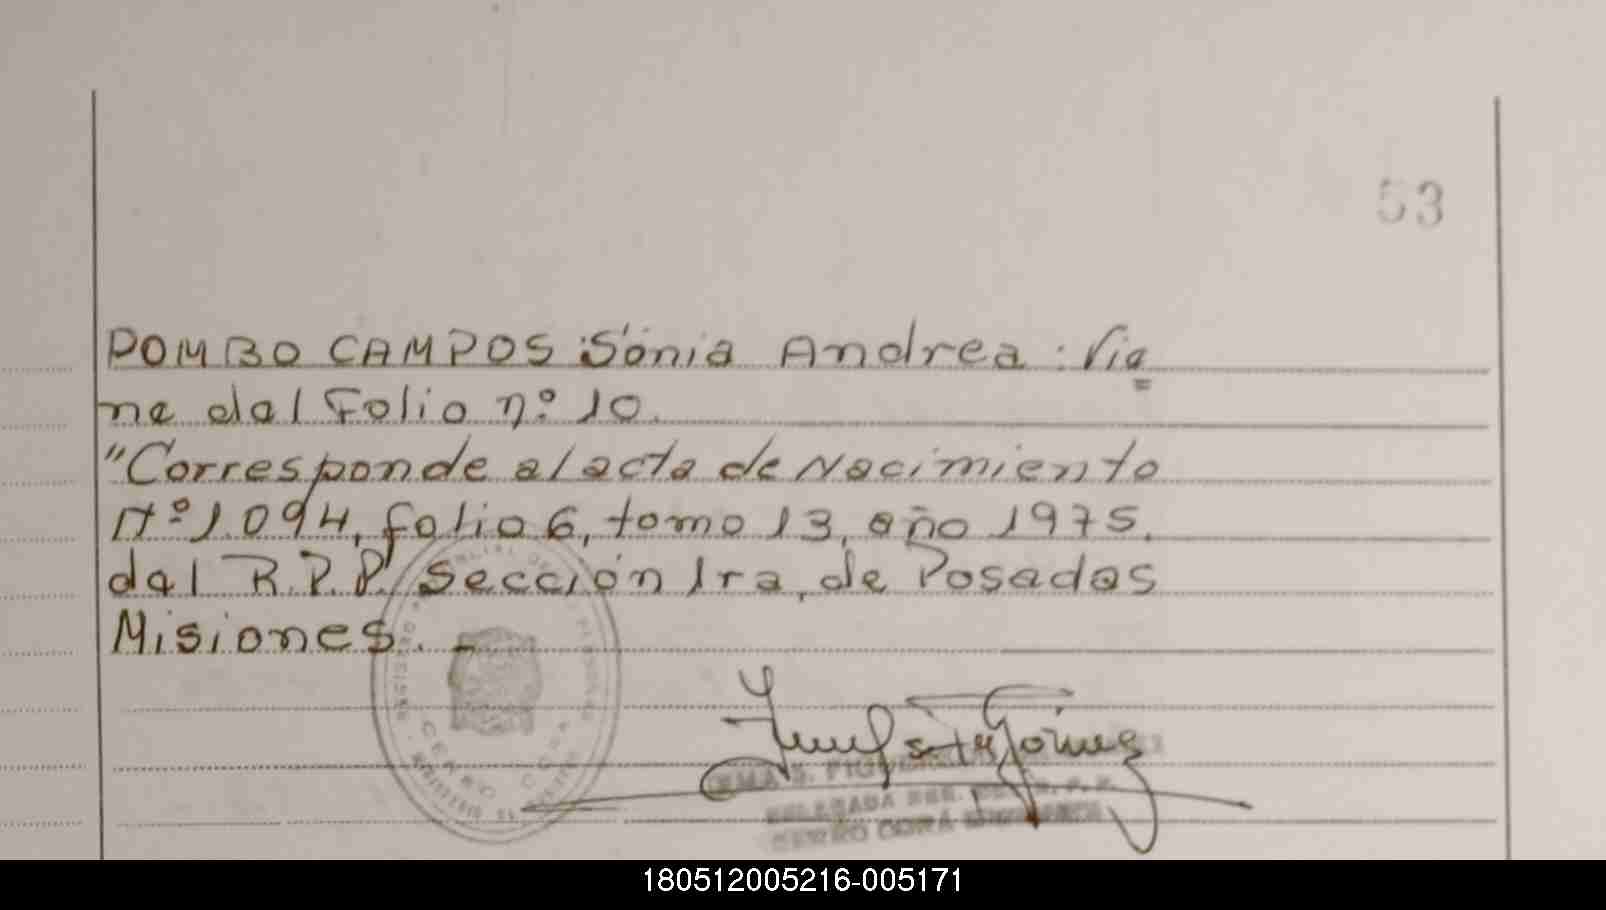 53
POMBO CAMPOS: Sónia Andrea: Vie
ne del Folio nº 10.
"Corresponde al acta de Nacimiento
Nº 1.094, folio 6, tomo 13, año 1975.
del R.P.P. Sección 1ra, de Posadas
Misiones. -
CERRO CORA
DELEGADA REG.
CERRO CORA MISIONES
180512005216-005171